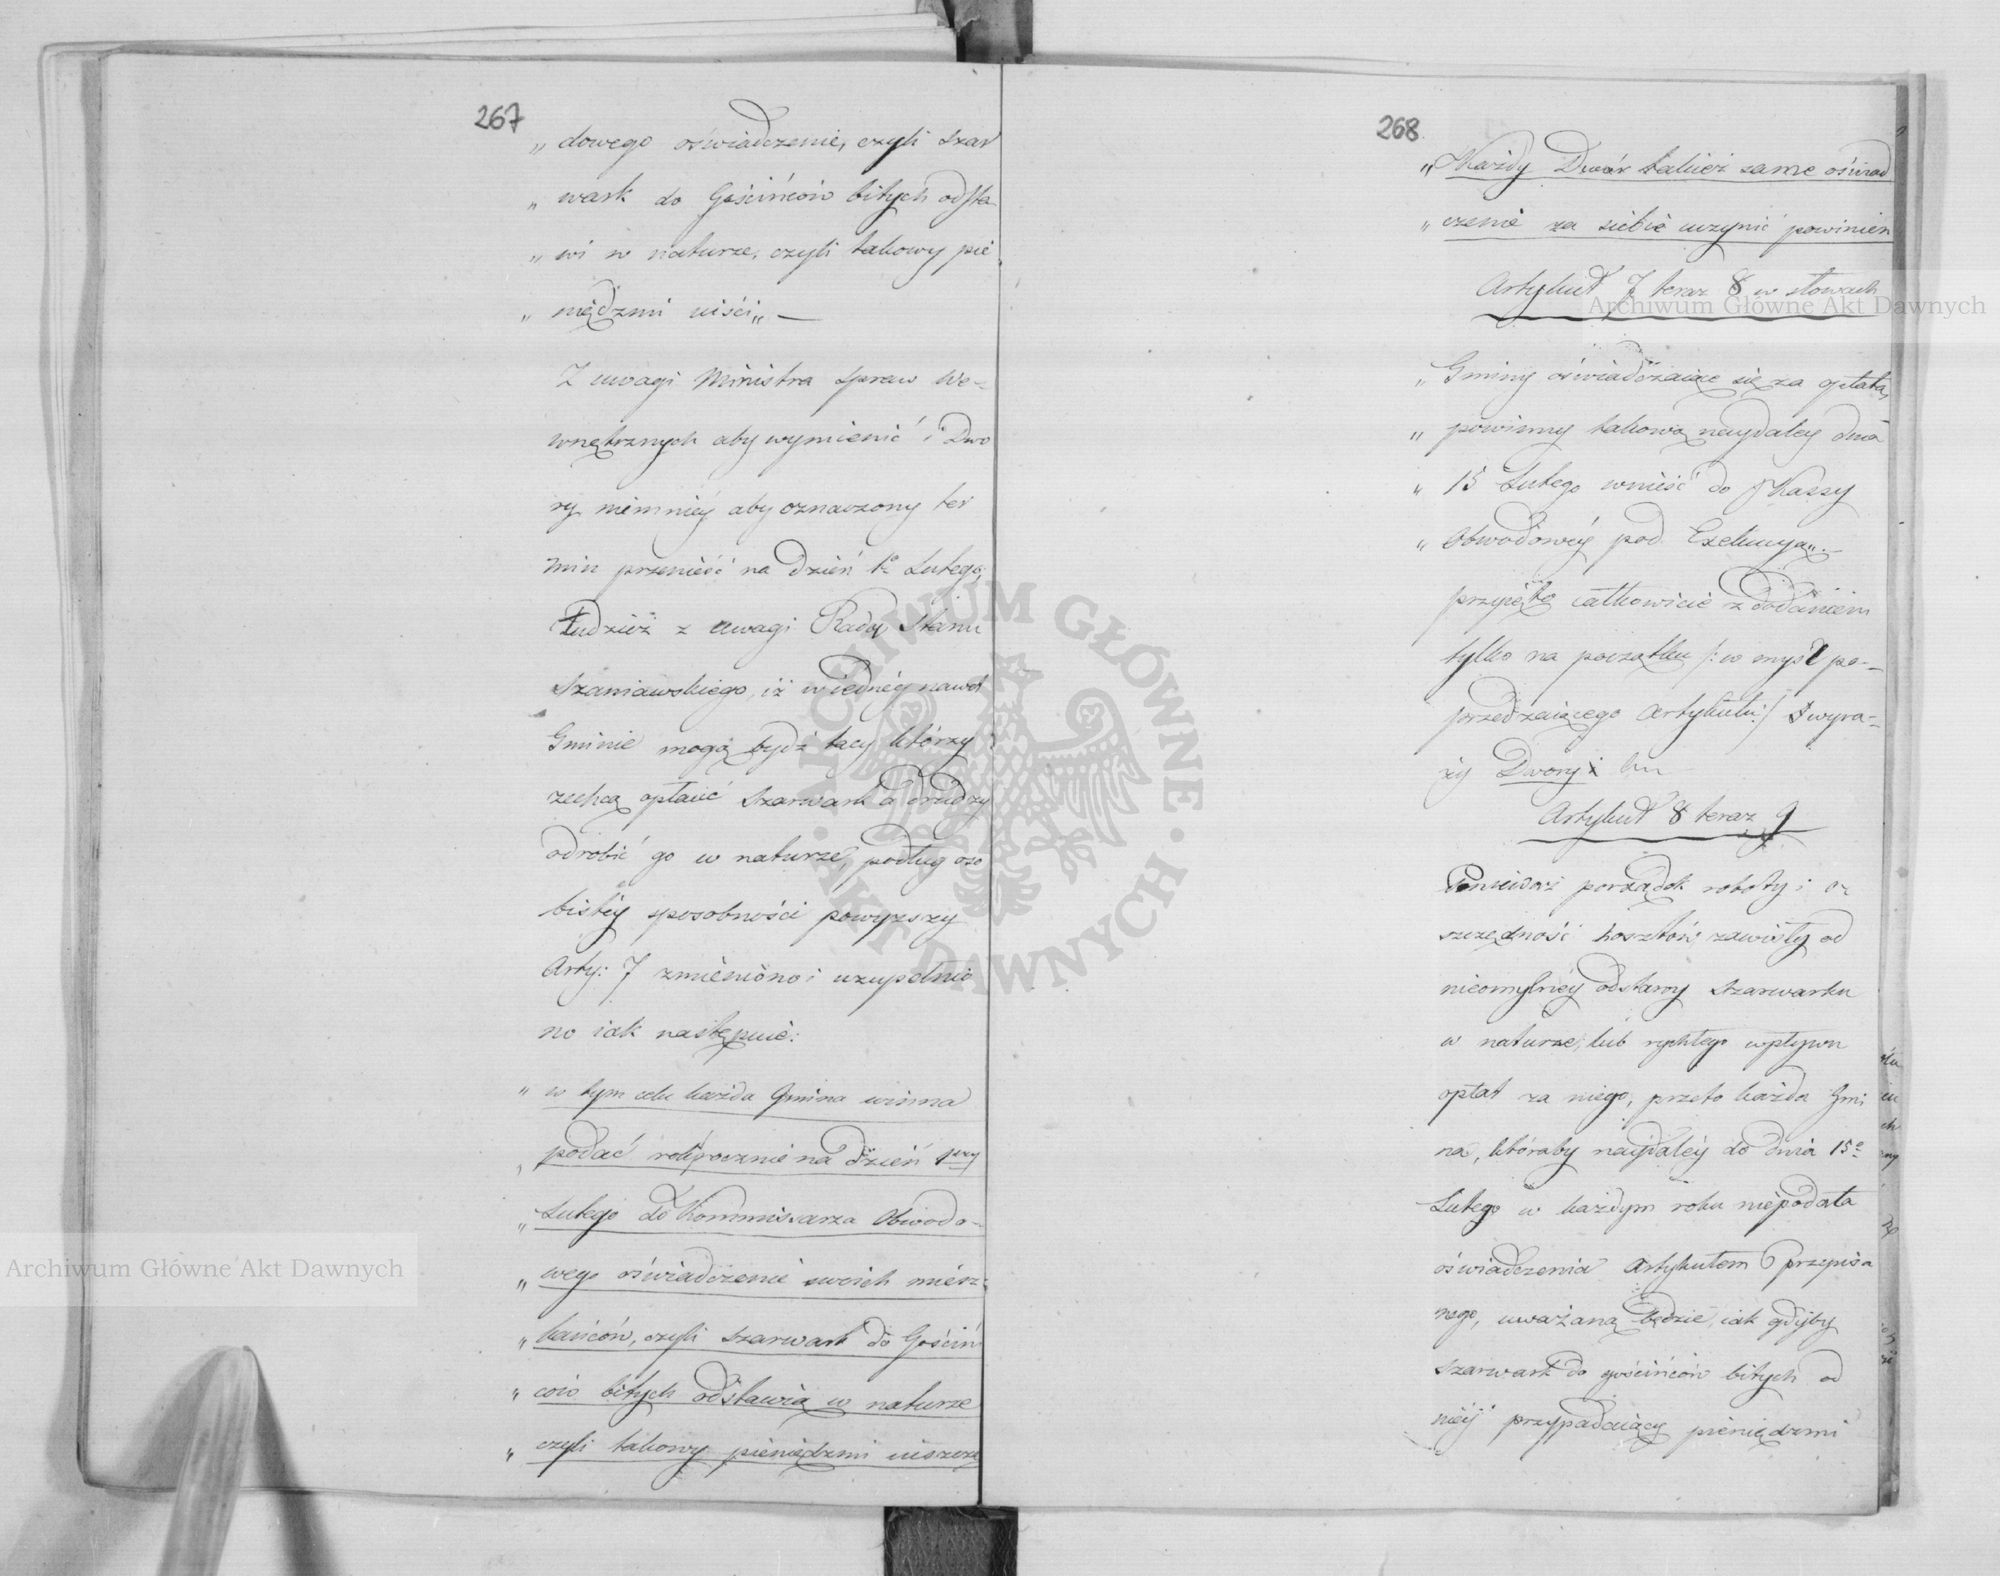 267
„ dowego oświadczenie, czyli szar
„ wark do Gościńców bitych odsta
„ wi w naturze, czyli takowy pie
„ niędzmi uiści„ —
Z uwagi Ministra Spraw We-
wnętrznych aby wymienić i Dwo
ry niemniéy aby oznaczony ter
min przenieść na dzień 1º Lutego,
Tudzież z uwagi Radcy Stanu
Szaniawskiego, iż w iednéy nawet
Gminie mogą bydź tacy którzy
zechcą opłacić szarwark a drudzy
odrobić go w naturze, podług oso
bistéy sposobności powyższy
Arty: 7 zmieniono i uzupełnio
no iak następuie:
„ w tym celu każda Gmina winna
„ podać rokrocznie na dzień 1wszy
„ Lutego do Kommissarza Obwodo-
„ wego oświadczenie swoich miesz-
„ kańców, czyli szarwark do Gościń
„ ców bitych odstawią w naturze
„ czyli takowy pieniędzmi uiszczą
268
„ Każdy Dwór takież same oświad
„ czenie za siebie uczynić powinien
Artykuł 7 teraz 8 w słowach
„ Gminy oświadczaiące się za opłatą,
„ powinny takową naydaléy dnia
„ 15 Lutego wnieść do Kassy
„ Obwodowéy pod Exekucyą„ —
przyięto całkowicie z dodaniem
tylko na początku /: w myśl po-
przedzaiącego Artykułu :/ wyra-
zy Dwory i
Artykuł 8 teraz 9
Ponieważ porządek roboty i o-
szczędność kosztów zawisły od
nieomylnéy odstawy szarwarku
w naturze, lub rychłego wpływu
opłat za niego, przeto każda Gmi
na, któraby naydaléy do dnia 15º
Lutego w każdym roku niepodała
oświadczenia Artykułem 6 przepisa
nego, uważaną będzie, iak gdyby
szarwark do gościńców bitych od
niéy przypadaiący pieniędzmi
Archiwum Główne Akt Dawnych
Archiwum Główne Akt Dawnych
ARCHIWUM GŁÓWNE · AKT DAWNYCH ·